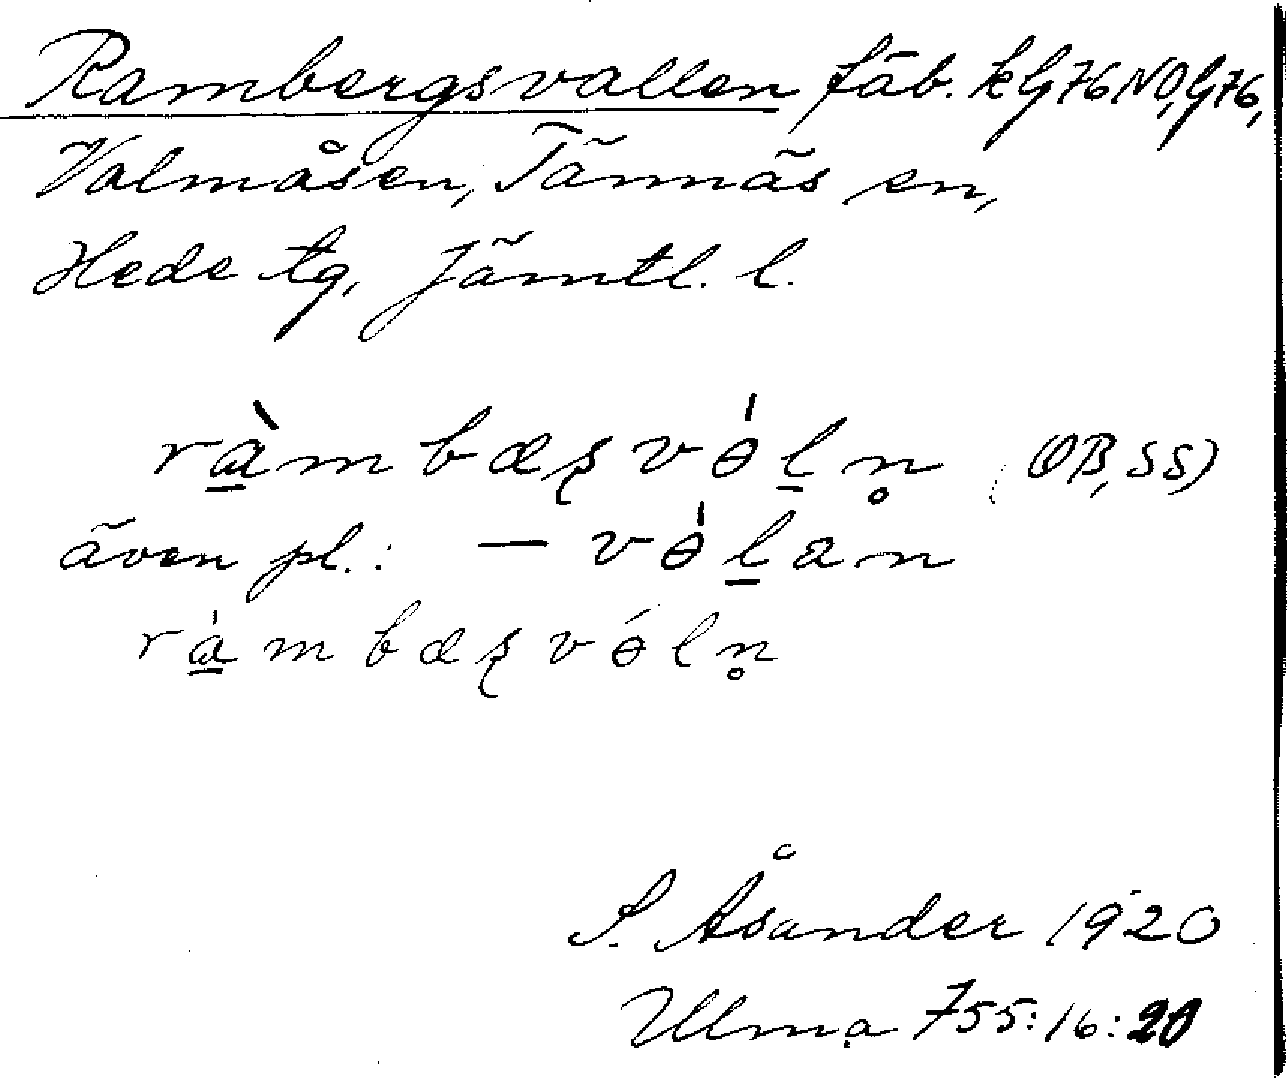 Rambergsvallen fäb. k G76NO, G76,
Valmåsen, Tännäs sn,
Hede tg, Jämtl. l.
rà̱mbæʂvɵ́ḻn̥ (OB, SS)
även pl.: — vɵ́ḻan
rà̱mbæʂvɵ́ln̥
S. Åsander 1920
Ulma 755:16:20